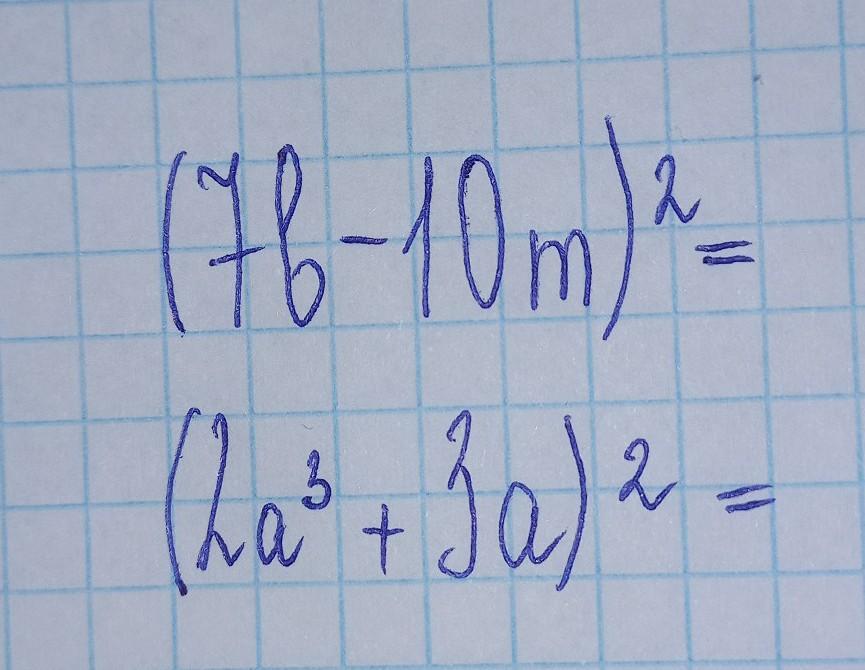 (7b-10m)²=
(2a³+3a)²=